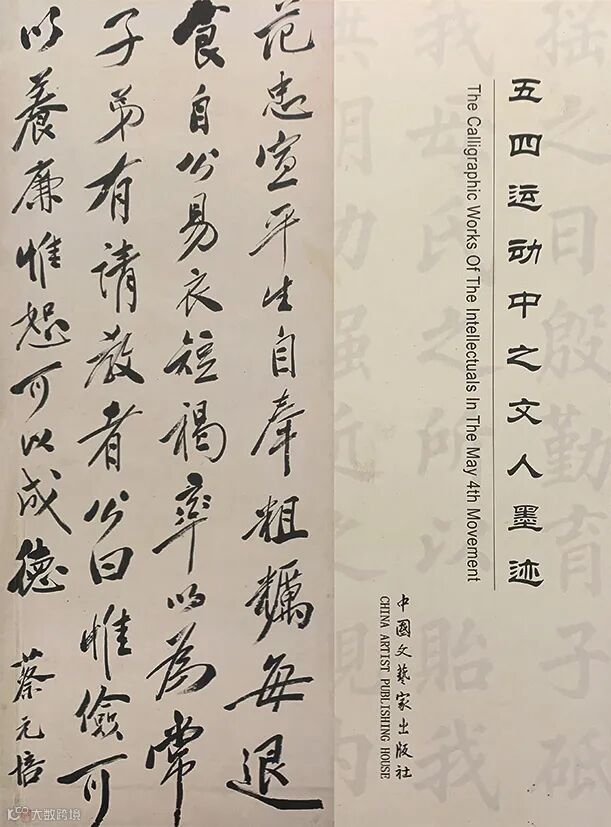 之日殷勤育子砥
五四运动中之文人墨迹
The Calligraphic Works Of The Intellectuals In The May 4th Movement
我母氏之所以貽我
中國文藝家出版社
CHINA ARTIST PUBLISHING HOUSE
强近之
范忠宣平生自奉粗糲每退
食自公易衣短褐率以為常
子弟有請教者公曰惟儉可
以養廉惟恕可以成德
蔡元培
大数跨境